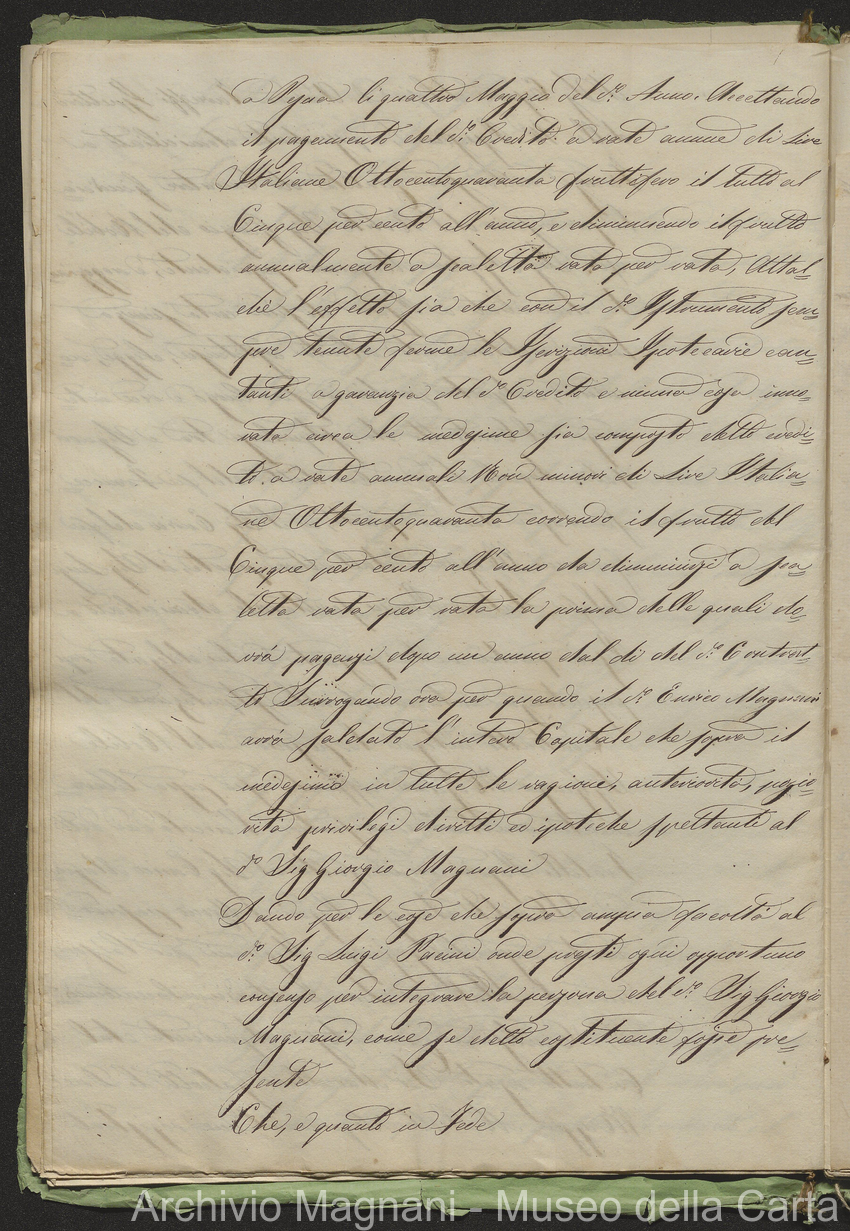 a Pescia li quattro Maggio del do. Anno. Accettando
il pagamento del do. Credito a rate annue di Lire
Italiane Ottocentoquaranta fruttifero il tutto al
Cinque per cento all'anno, e diminuendo il frutto
annualmente a scaletta rata per rata, Attal=
chè l'effetto sia che con il do. Istrumento sem=
pre tenute ferme le Iscrizioni Ipotecarie can=
tanti a garanzia del do. Credito e niuna cosa inno=
vata circa le medesime sia composto detto credi=
to. a rate annuali Non minori di Lire Italia=
ne Ottocentoquaranta correndo il frutto del
Cinque per cento all'anno da diminuirsi a sca=
letta rata per rata la prima delle quali do=
vrà pagarsi dopo un anno dal dì del do. Contrat=
to Surrogando ora per quando il do. Enrico Magnani
avrà saldato l'intero Capitale che sopra il
medesimo in tutte le ragioni, anteriorità, pozio=
rità privilegi diritti ed ipoteche spettanti al
do. Sig Giorgio Magnani
Dando per le cose che sopra ampia facoltà al
do. Sig Luigi Pacini onde presti ogni opportuno
consenso per integrare la persona del do. Sig Giorgio
Magnani, come se detto costituente fosse pre=
sente
Che, e quanto in Fede
Archivio Magnani - Museo della Carta